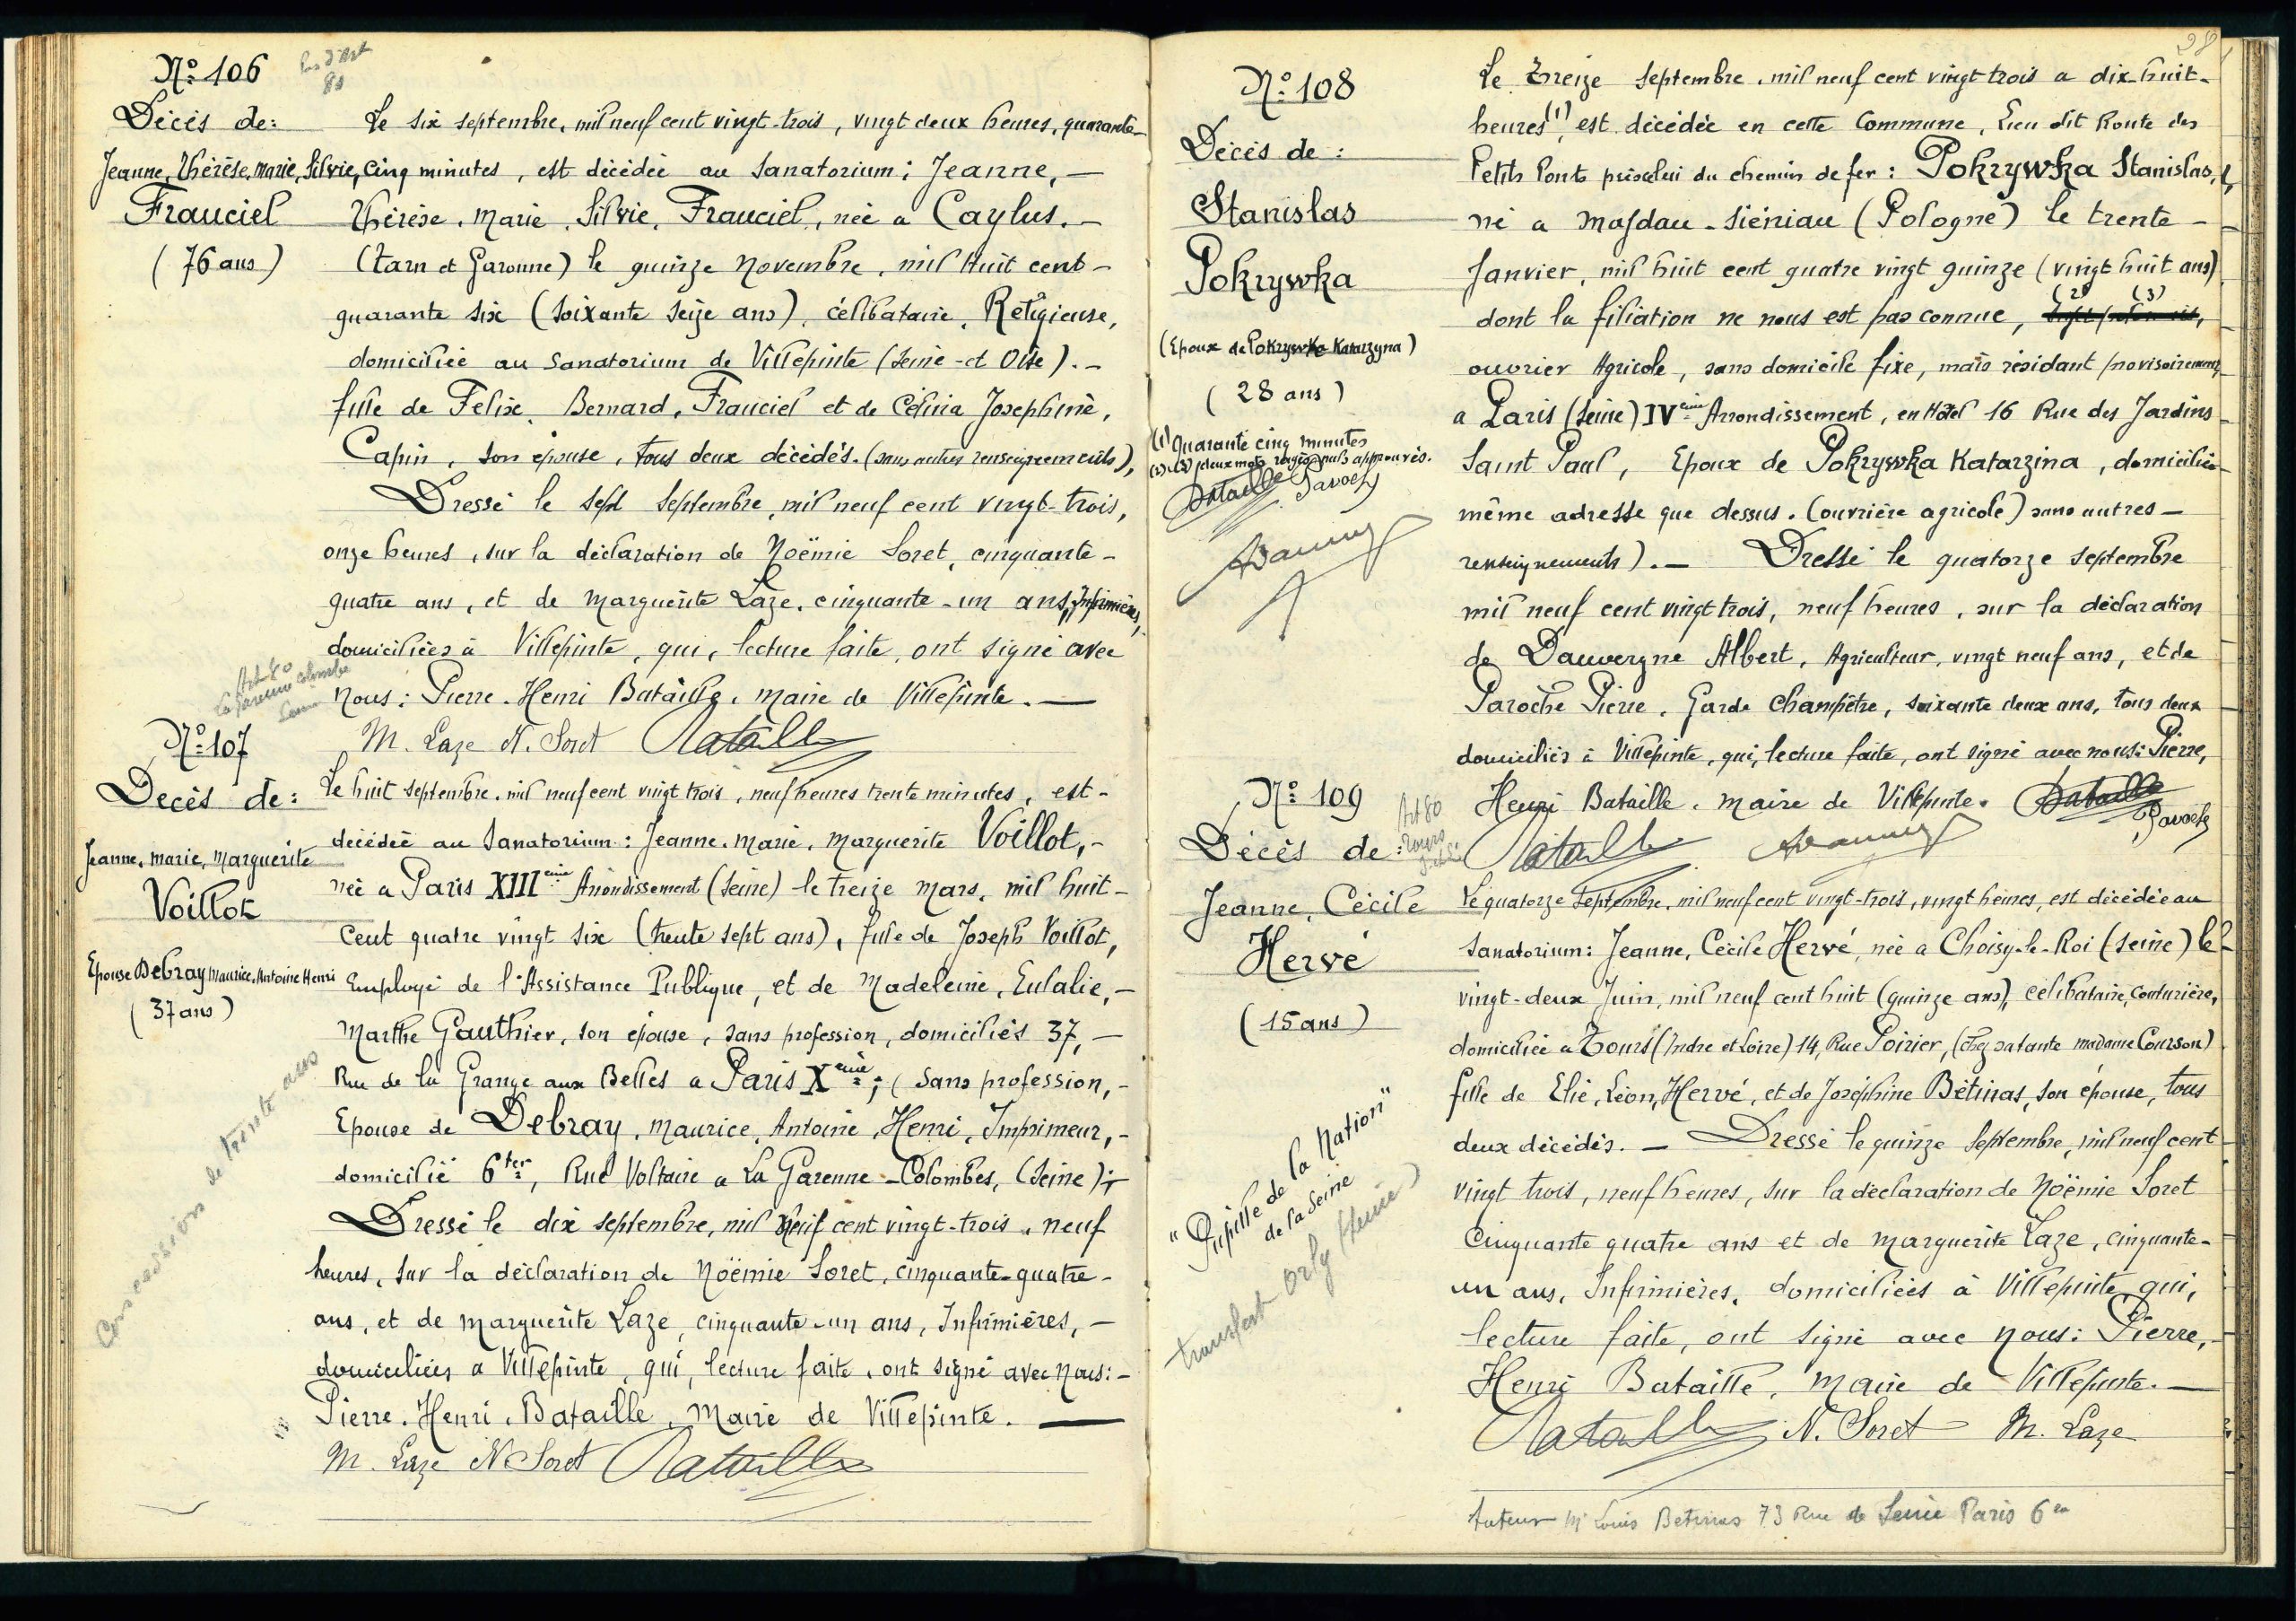 Nº 106
Décès de:
Jeanne, Thérèse, Marie, Silvie,
Frauciel
(76 ans)
Le six septembre, mil neuf cent vingt-trois, vingt deux heures, quarante-
cinq minutes, est décédée au Sanatorium: Jeanne, —
Thérèse, Marie, Silvie, Frauciel, née a Caylus. —
(Tarn et Garonne) le quinze Novembre, mil huit cent-
quarante six (soixante seize ans), célibataire, Religieuse,
domiciliée au Sanatorium de Villepinte (Seine-et Oise). -
fille de Felix, Bernard, Frauciel et de Célina Josephine,
Capin, son épouse, tous deux décédés. (sans autres renseignements),
Dressé le sept septembre, mil neuf cent vingt-trois,
onze heures, sur la déclaration de Noëmie Soret, cinquante-
quatre ans, et de Marguerite Laze, cinquante-un ans, Infirmières,
domiciliées à Villepinte, qui, lecture faite, ont signé avec
Nous: Pierre-Henri Bataille, Maire de Villepinte. —
M. Laze N. Soret Bataille
Art 80
La Garenne Colombe
Seine
Nº 107
Decès de:
Jeanne, Marie, Marguerite
Voillot
Epouse Debray Maurice, Antoine Henri
(37 ans)
Concession de trente ans
Le huit septembre, mil neuf cent vingt trois, neuf heures trente minutes, est-
décédée au Sanatorium: Jeanne, Marie, Marguerite Voillot, -
née a Paris XIIIème Arrondissement (Seine) le treize Mars, mil huit-
cent quatre vingt six (trente sept ans), fille de Joseph Voillot,
Employé de l'Assistance Publique, et de Madeleine, Eulalie, —
Marthe Gauthier, son épouse, sans profession, domiciliés 37, —
Rue de la Grange aux Belles a Paris Xème; (sans profession, -
Epouse de Debray, Maurice, Antoine, Henri, Imprimeur, -
domicilié 6ter, Rue Voltaire a La Garenne-Colombes, (Seine);
Dressé le dix septembre, mil neuf cent vingt-trois, neuf
heures, sur la déclaration de Noëmie Soret, cinquante-quatre-
ans, et de Marguerite Laze, cinquante-un ans, Infirmières, —
domiciliées a Villepinte, qui, lecture faite, ont signé avec Nous: -
Pierre-Henri Bataille, Maire de Villepinte. —
M. Laze N. Soret Bataille
Nº 108
Décès de:
Stanislas
Pokrywka
(Epoux de Pokrywka Katarzyna)
(28 ans)
(1) quarante cinq minutes
(2) et (3) deux mots rayés nuls approuvés.
Bataille Paroche
ADauverg
Le treize septembre, mil neuf cent vingt-trois a dix-huit-
heures (1), est décédée en cette Commune, Lieu dit Route des
Petits Ponts près celui du chemin de fer: Pokrywka Stanislas,
né a Masdau-Siéniau (Pologne) le trente-
Janvier, mil huit cent quatre vingt quinze (vingt huit ans)
dont la filiation ne nous est pas connue, (2) (3)
ouvrier Agricole, sans domicile fixe, mais résidant provisoirement
a Paris (Seine) IVème Arrondissement, en Hôtel 16 Rue des Jardins
Saint Paul, Epoux de Pokrywka Katarzina, domiciliée
même adresse que dessus. (ouvrière agricole) sans autres —
renseignements). — Dressé le quatorze septembre
mil neuf cent vingt trois, neuf heures, sur la déclaration
de Dauvergne Albert, Agriculteur, vingt neuf ans, et de
Paroche Pierre, Garde Champêtre, soixante deux ans, tous deux
domiciliés à Villepinte, qui, lecture faite, ont signé avec nous: Pierre,
Henri Bataille, Maire de Villepinte. Bataille Paroche
Bataille ADauverg
Nº 109
Art 80
Tours
Décès de:
Jeanne, Cécile
Hervé
(15 ans)
"Pupille de la Nation"
de la Seine
transfert Orly (Seine)
Le quatorze septembre, mil neuf cent vingt-trois, vingt heures, est décédée au
Sanatorium: Jeanne, Cécile Hervé, née a Choisy-le-Roi (Seine) le
vingt-deux Juin, mil neuf cent huit (quinze ans), célibataire, Couturière,
domiciliée a Tours (Indre et Loire) 14, Rue Poirier, (chez sa tante madame Courson)
fille de Elie, Léon, Hervé, et de Joséphine Bétinas, son épouse, tous
deux décédés. — Dressé le quinze septembre, mil neuf cent
vingt trois, neuf heures, sur la déclaration de Noëmie Soret
Cinquante quatre ans et de Marguerite Laze, cinquante-
un ans, Infirmières, domiciliées à Villepinte, qui,
lecture faite, ont signé avec Nous: Pierre, -
Henri Bataille, Maire de Villepinte. —
Bataille N. Soret M. Laze
tuteur Mr Louis Betinas 73 Rue de Seine Paris 6e